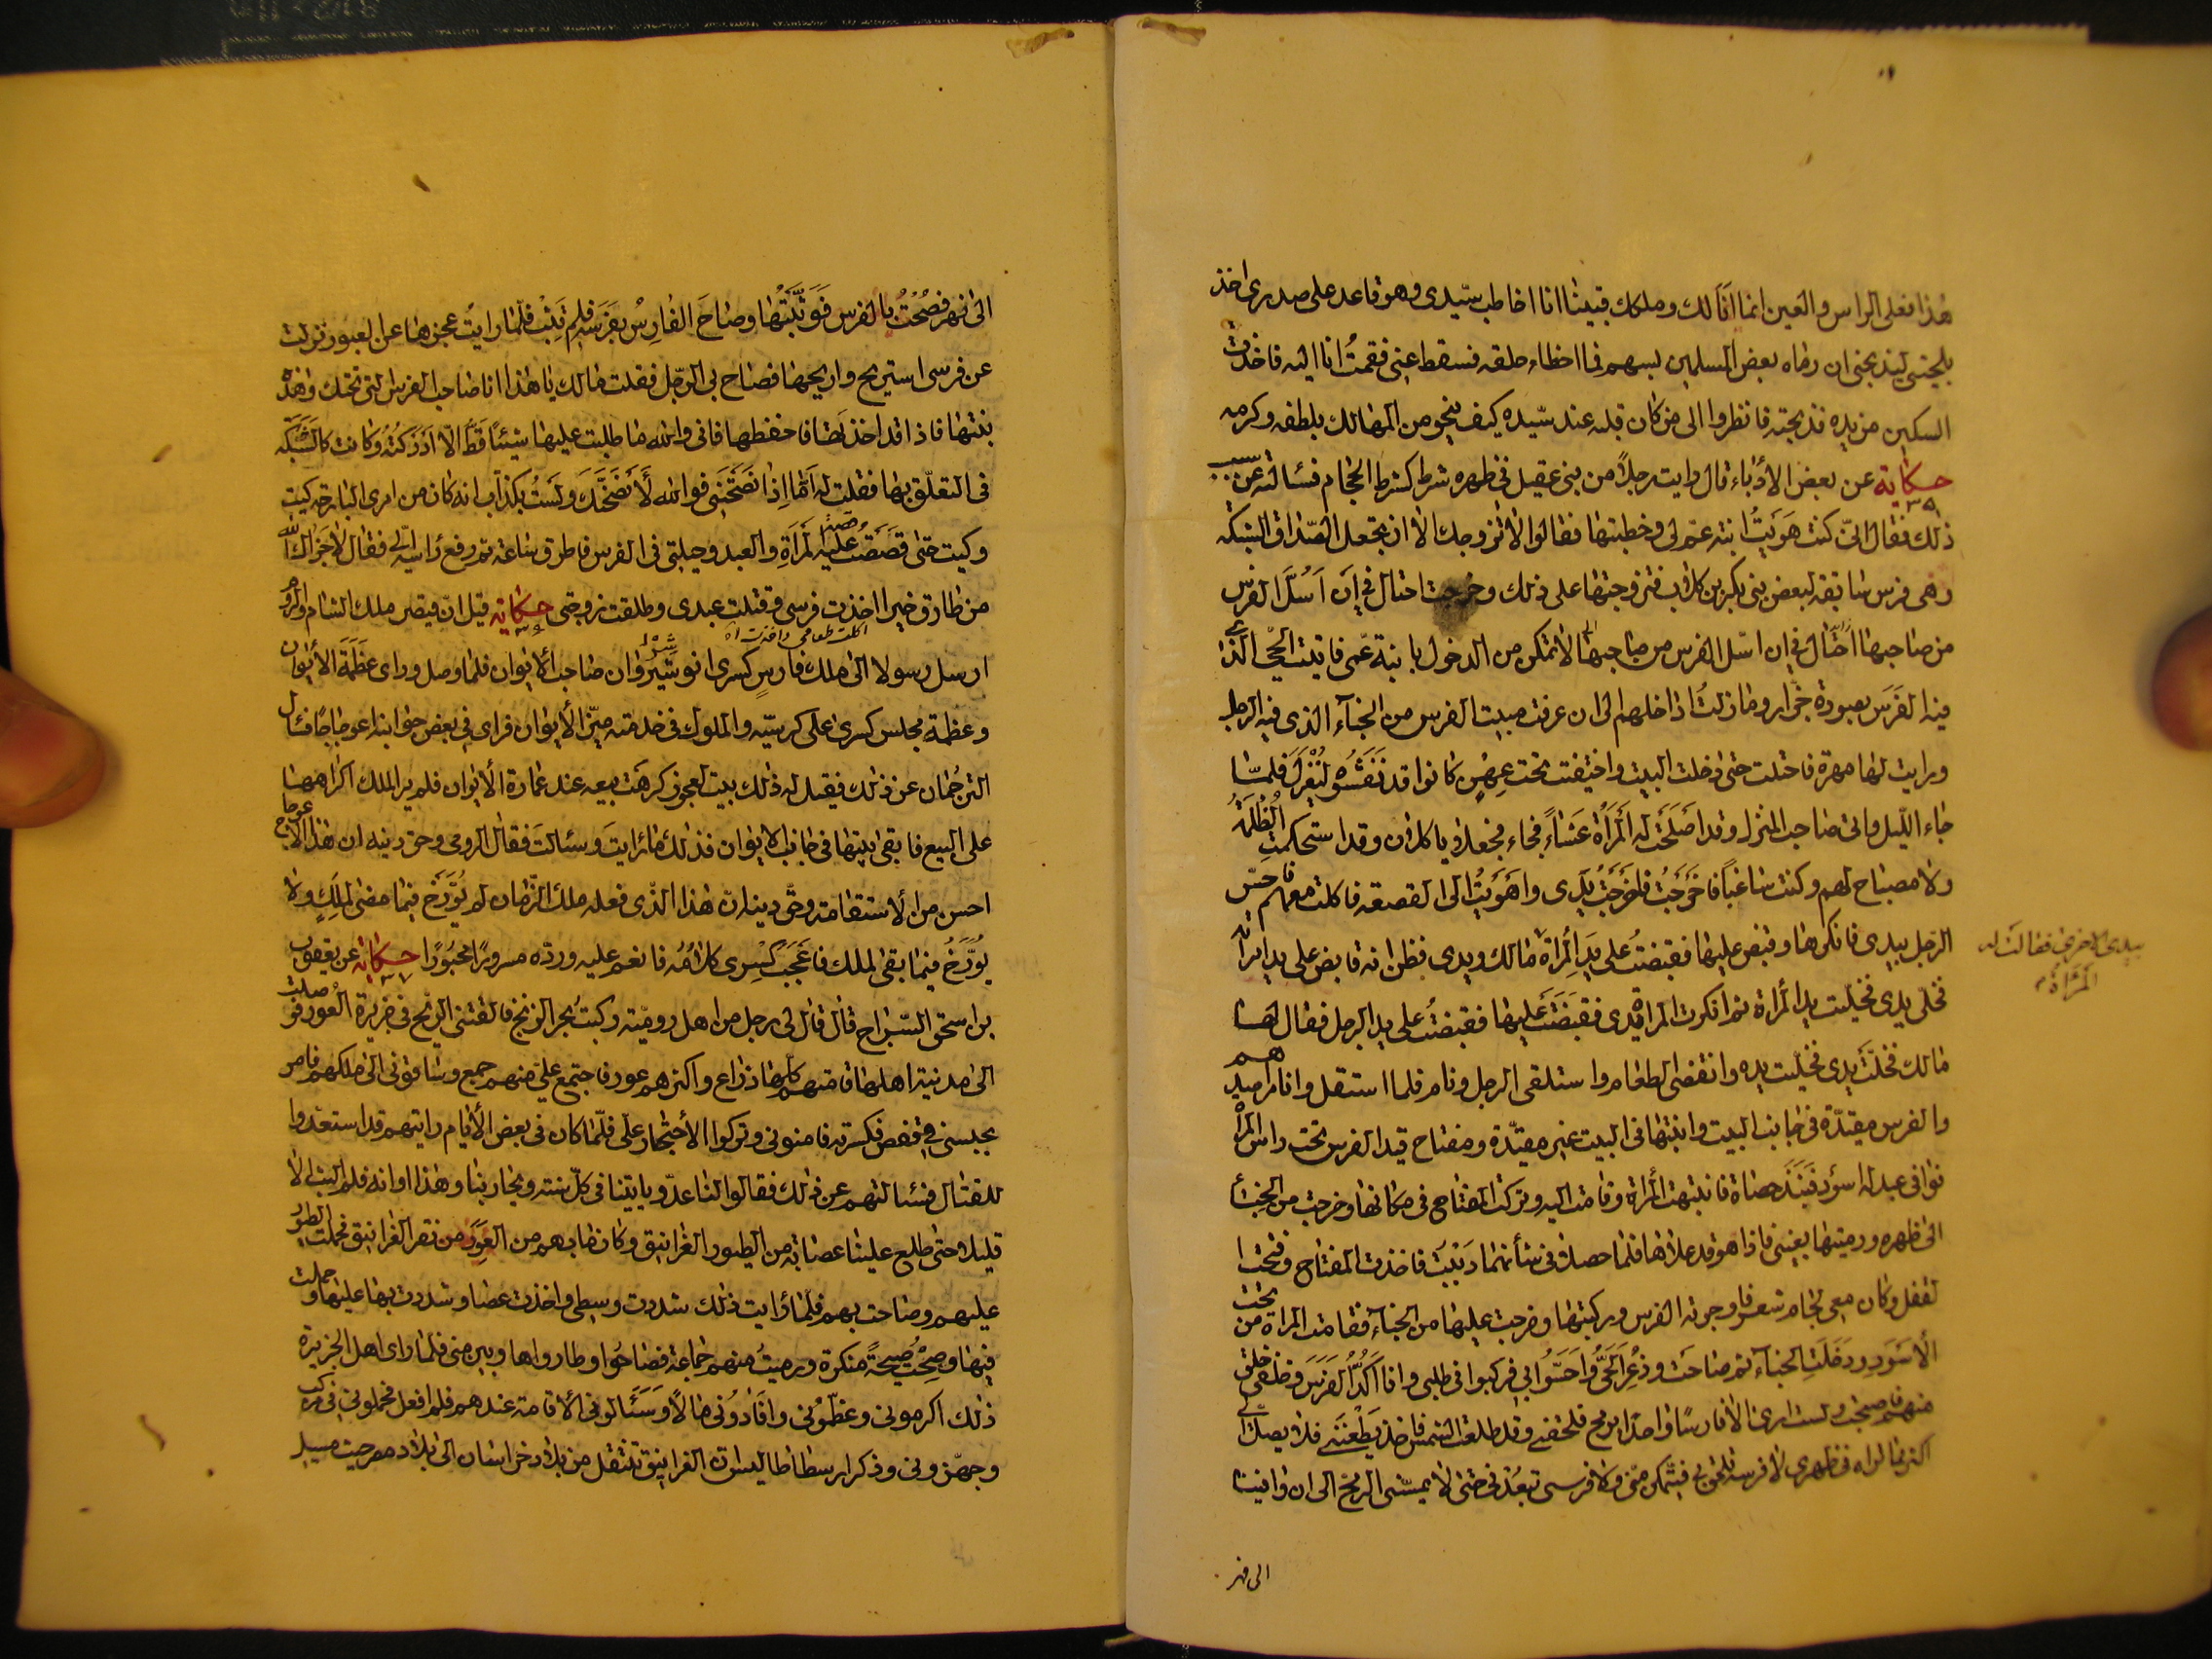 هذا فعلى الراس والعين انما انا لك وملكك فبينا انا اخاطب سيدى وهو قاعد على صدرى اخذ
بلحيتى ليذبحنى ان رماه بعض المسلمين بسهم فما اخطاء حلقه فسقط عنى فقمت انا اليه فاخذت
السكين من يده فذبحته فانظروا الى من كان قلبه عند سيده كيف ينجو من المهالك بلطفه وكرمه
حكاية عن بعض الأدباء قال رايت رجلاً من بنى عقيل فى ظهره شرط كشرط الحجام فسالته عن سبب
٣٥
ذلك فقال انى كنت هويت ابنة عم لى وخطبتها فقالوا لا نزوجك الا ان تجعل الصداق الشبكه
وهى فرس سابقة لبعض بنى بكر بن كلاب فتزوجتها على ذلك وخرجت احتال فى ان اسل الفرس
من صاحبها احتال فى ان اسل الفرس من صاحبها لاتمكن من الدخول بابنة عمى فاتيت الحى الذى
فيه الفرس بصورة جزار وما زلت اداخلهم الى ان عرفت مبيت الفرس من الخباء الذى فيه الرجل
ورايت لها مهرة فاحتلت حتى دخلت البيت واختفيت تحت عهن كانوا قد نفشوه ليغزل فلما
جاء الليل واتى صاحب المنزل وقد اصلحت له المرأة عشاءً فجاء فجعلا ياكلان وقد استحكمت الظلمة
ولا مصباح لهم وكنت ساغباً فاخرجت يدى واهويت الى القصعة فاكلت معهم فاحس
الرجل بيدى فانكرها وقبض عليها فقبضت على يد المرأة مالك ويدى فظن انه قابض على يد امراته
بيدى الاخرى فقالت له
المرأة
فخلى يدى فخليت يد المرأة ثم انكرت المراة يدى فقبضت عليها فقبضت على يد الرجل فقال لها
مالك فخلت يدى فخليت يده وانقضى الطعام واستلقى الرجل ونام فلما استقل وانا مراصدهم
والفرس مقيدة فى جانب البيت وابنتها فى البيت غير مقيدة ومفتاح قيد الفرس تحت راس المرأة
فوافى عبد له اسود فنبذ حصاة فانتبهت المرأة وقامت اليه وتركت المفتاح فى مكانها وخرجت من الخباء
الى ظهره ورميتها بعينى فاذا هو قد علاها فلما حصلا فى شأنهما دببت فاخذت المفتاح وفتحت
القفل وكان معى لجام شعر فاوجرته الفرس وركبتها وخرجت عليها من الخباء فقامت المراة من تحت
الأسود ودخلت الخباء ثم صاحت وذعر الحى واحسوا بى فركبوا فى طلبى وانا اكد الفرس وخلفى خلق
منهم فاصبحت ولست ارى الا فارسا واحدا برمح فلحقنى وقد طلعت الشمس فاخذ يطعننى فلا يصل الى
اكثر مما تراه فى ظهرى لا فرسه تلحق بى فيتمكن منى ولا فرسى تبعدنى حتى لا يمسنى الرمح الى ان وافينا
الى نهر
الى نهر فصحت بالفرس فوثبتها وصاح الفارس بفرسه فلم تثب فلما رايت عجزها عن العبور نزلت
عن فرسى استريح واريحها فصاح بى الرجل فقلت مالك يا هذا انا صاحب الفرس التى تحتك وهذه
بنتها فاذا قد اخذتها فاحفظها فانى والله ما طلبت عليها شيئا قط الا ادركته وكانت كالشبكه
فى التعلق بها فقلت له اما اذا نصحتنى فوالله لا نصحنك ولست بكذاب انه كان من امرى البارحة كيت
وكيت حتى قصصت عليه قصة المراة والعبد وحيلتى فى الفرس فاطرق ساعة ثم رفع راسه الى فقال لا جزاك الله
من طارق خيرا اخذت فرسى وقتلت عبدى وطلقت زوجتى حكاية قيل ان قيصر ملك الشام والروم
اكلت طعامى واخذت اه
٣٦
ارسل رسولا الى ملك فارس كسرى انوشيروان صاحب الايوان فلما وصل وراى عظمة الأيوان
وعظمة مجلس كسرى على كرسيه والملوك فى خدمته ميز الأيوان فراى فى بعض جوانبه اعوجاجا فسأل
الترجمان عن ذلك فقيل له ذلك بيت لعجوز كرهت بيعه عند عمارة الأيوان فلم ير الملك اكراهها
على البيع فابقى بيتها فى جانب الايوان فذلك ما رايت وسالت فقال الرومى وحق دينه ان هذا الاعوجاج
احسن من الأستقامة وحق دينه ان هذا الذى فعله ملك الزمان لم يؤرخ فيما مضى لملك ولا
يؤرخ فيما بقى لملك فاعجب كسرى كلامه فانعم عليه ورده مسرورا محبورا حكاية عن يعقوب
٣٧
بن اسحق السراج قال قال لى رجل من اهل رومية ركبت بحر الزنج فالقتنى الريح فى جزيرة العور فوصلت
الى مدينة اهلها قامتهم كلها ذراع واكثرهم عور فاجتمع على منهم جمع وساقونى الى ملكهم فامر
بحبسى فى قفص فكسرته فامنونى وتركوا الأحتجار على فلما كان فى بعض الأيام رايتهم قد استعدوا
للقتال فسالتهم عن ذلك فقالوا لنا عدو ياتينا فى كل سنة ويحاربنا وهذا اوانه فلم البث الا
قليلا حتى طلع علينا عصابة من الطيور الغرانيق وكان مابهم من العور من نقر الغرانيق فحملت الطيور
عليهم وصاحت بهم فلما رايت ذلك شددت وسطى واخذت عصا وشددت بها عليها وحملت
فيها وصحت صيحة منكرة ورميت منهم جماعة فصاحوا وطاروا هاربين منى فلما راى اهل الجزيرة
ذلك اكرمونى وعظمونى وافادونى مالاً وسألونى الأقامة عندهم فلم افعل فحملونى فى مركب
وجهزونى وذكر ارسطاطاليس ان الغرانيق تنتقل من بلاد خراسان الى بلاد مصر حيث مسيل